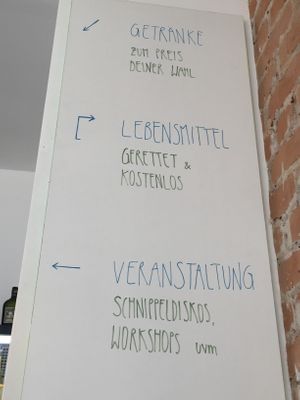 GETRÄNKE
ZUM PREIS
DEINER WAHL
LEBENSMITTEL
GERETTET &
KOSTENLOS
VERANSTALTUNG
SCHNIPPELDISKOS,
WORKSHOPS uvm